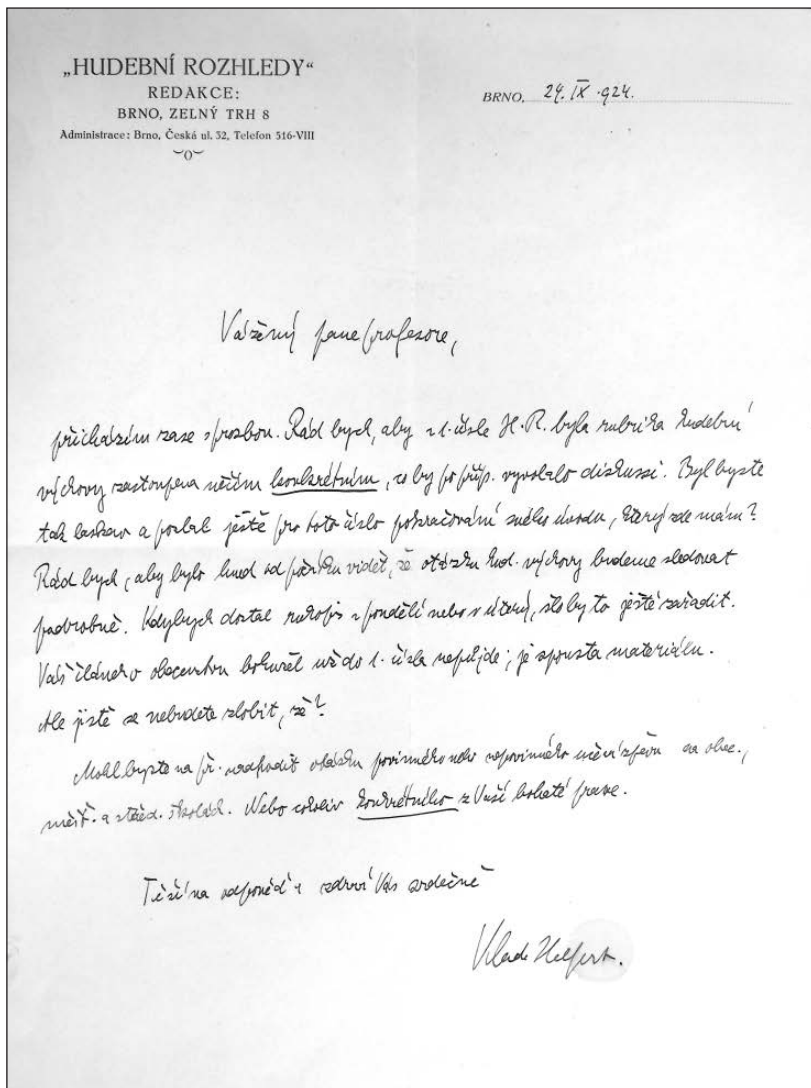 „HUDEBNÍ ROZHLEDY“
REDAKCE:
BRNO, ZELNÝ TRH 8
Administrace: Brno, Česká ul. 32, Telefon 516-VIII
BRNO, 24. IX. 924.
Vážený pane profesore,
přicházím zase s prosbou. Rád bych, aby v 1. čísle H. R. byla rubrika hudební
výchovy zastoupena něčím konkrétním, co by po příp. vyvolalo diskussi. Byl byste
tak laskav a poslal ještě pro toto číslo pokračování svého úvodu, který zde mám?
Rád bych, aby bylo hned od počátku vidět, že otázku hud. výchovy budeme sledovat
podrobně. Kdybych dostal rukopis v pondělí nebo v úterý, šlo by to ještě zařadit.
Váš článek o obecenstvu bohužel už do 1. čísla nepůjde; je spousta materiálu.
Ale jistě se nebudete zlobit, že?
Mohl byste na př. nadhodit otázku povinného nebo nepovinného učení zpěvu na obec.,
měšť. a střed. školách. Nebo cokoliv konkrétního z Vaší bohaté praxe.
Těší na odpověď a zdraví Vás srdečně
Vlad. Helfert.